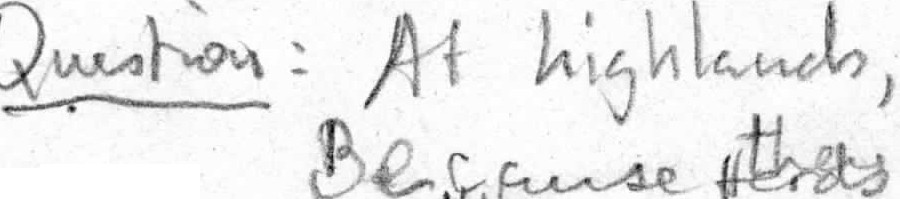 Question: At highlands,
Because